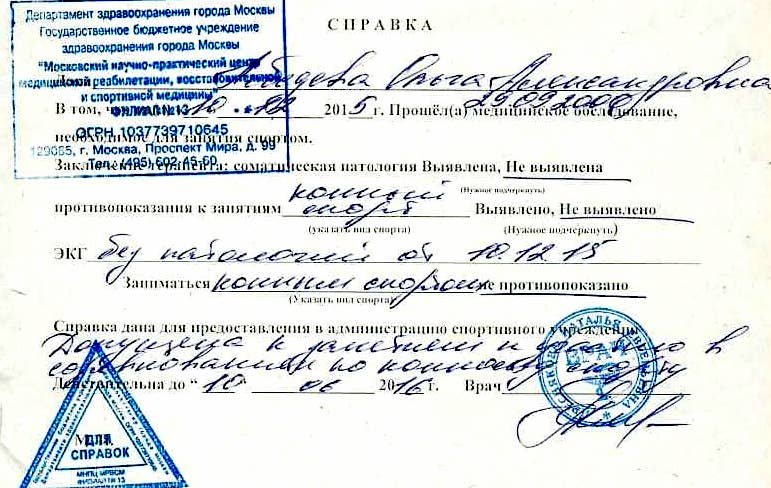 Департамент здравоохранения города Москвы
Государственное бюджетное учреждение
здравоохранения города Москвы
"Московский научно-практический центр
медицинской реабилитации, восстановительной
и спортивной медицины"
ФИЛИАЛ № 13
ОГРН 1037739710645
129085, г. Москва, Проспект Мира, д. 99
Тел.: (495) 602-45-60
СПРАВКА
Ольга Александровна
29.09.2000
В том, 10 12 2015 г. Прошёл(а) медицинское обследование,
необходимое для занятия спортом.
Заключение терапевта: соматическая патология Выявлена, Не выявлена
(Нужное подчеркнуть)
противопоказания к занятиям конный спорт Выявлено, Не выявлено
(указать вид спорта) (Нужное подчеркнуть)
ЭКГ без патологии от 10.12.15
Заниматься конным спортом не противопоказано
(Указать вид спорта)
Справка дана для предоставления в администрацию спортивного учреждения
Допущена к занятиям и участию в
соревнованиях по конному спорту
Действительна до "10 06 2016 г. Врач
ВРАЧ
М.П.
ДЛЯ
СПРАВОК
МНПЦ МРВСМ
ФИЛИАЛ № 13